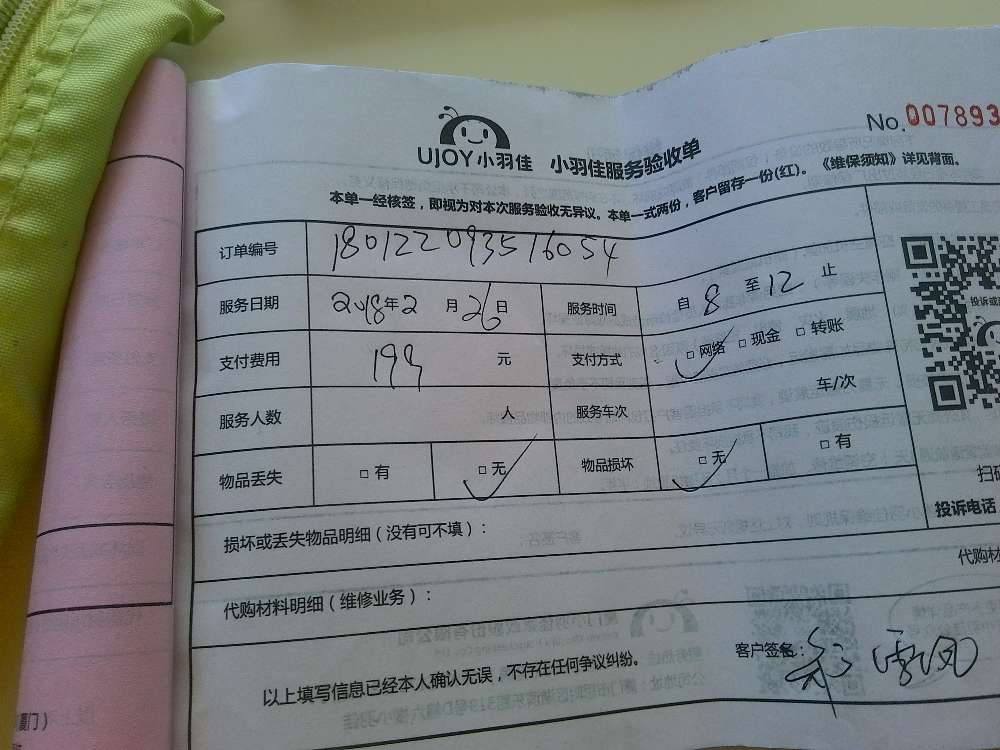 No.007893
UJOY小羽佳 小羽佳服务验收单
本单一经核签，即视为对本次服务验收无异议。本单一式两份，客户留存一份(红)。《维保须知》详见背面。
订单编号 180122093516054
服务日期 2018年2月26日 服务时间 自8至12止
支付费用 199元 支付方式 □网络 □现金 □转账
服务人数 人 服务车次 车/次
物品丢失 □有 □无 物品损坏 □无 □有
投诉或
扫码
投诉电话
损坏或丢失物品明细（没有可不填）：
代购材
代购材料明细（维修业务）：
客户签名：
以上填写信息已经本人确认无误，不存在任何争议纠纷。
厦门）